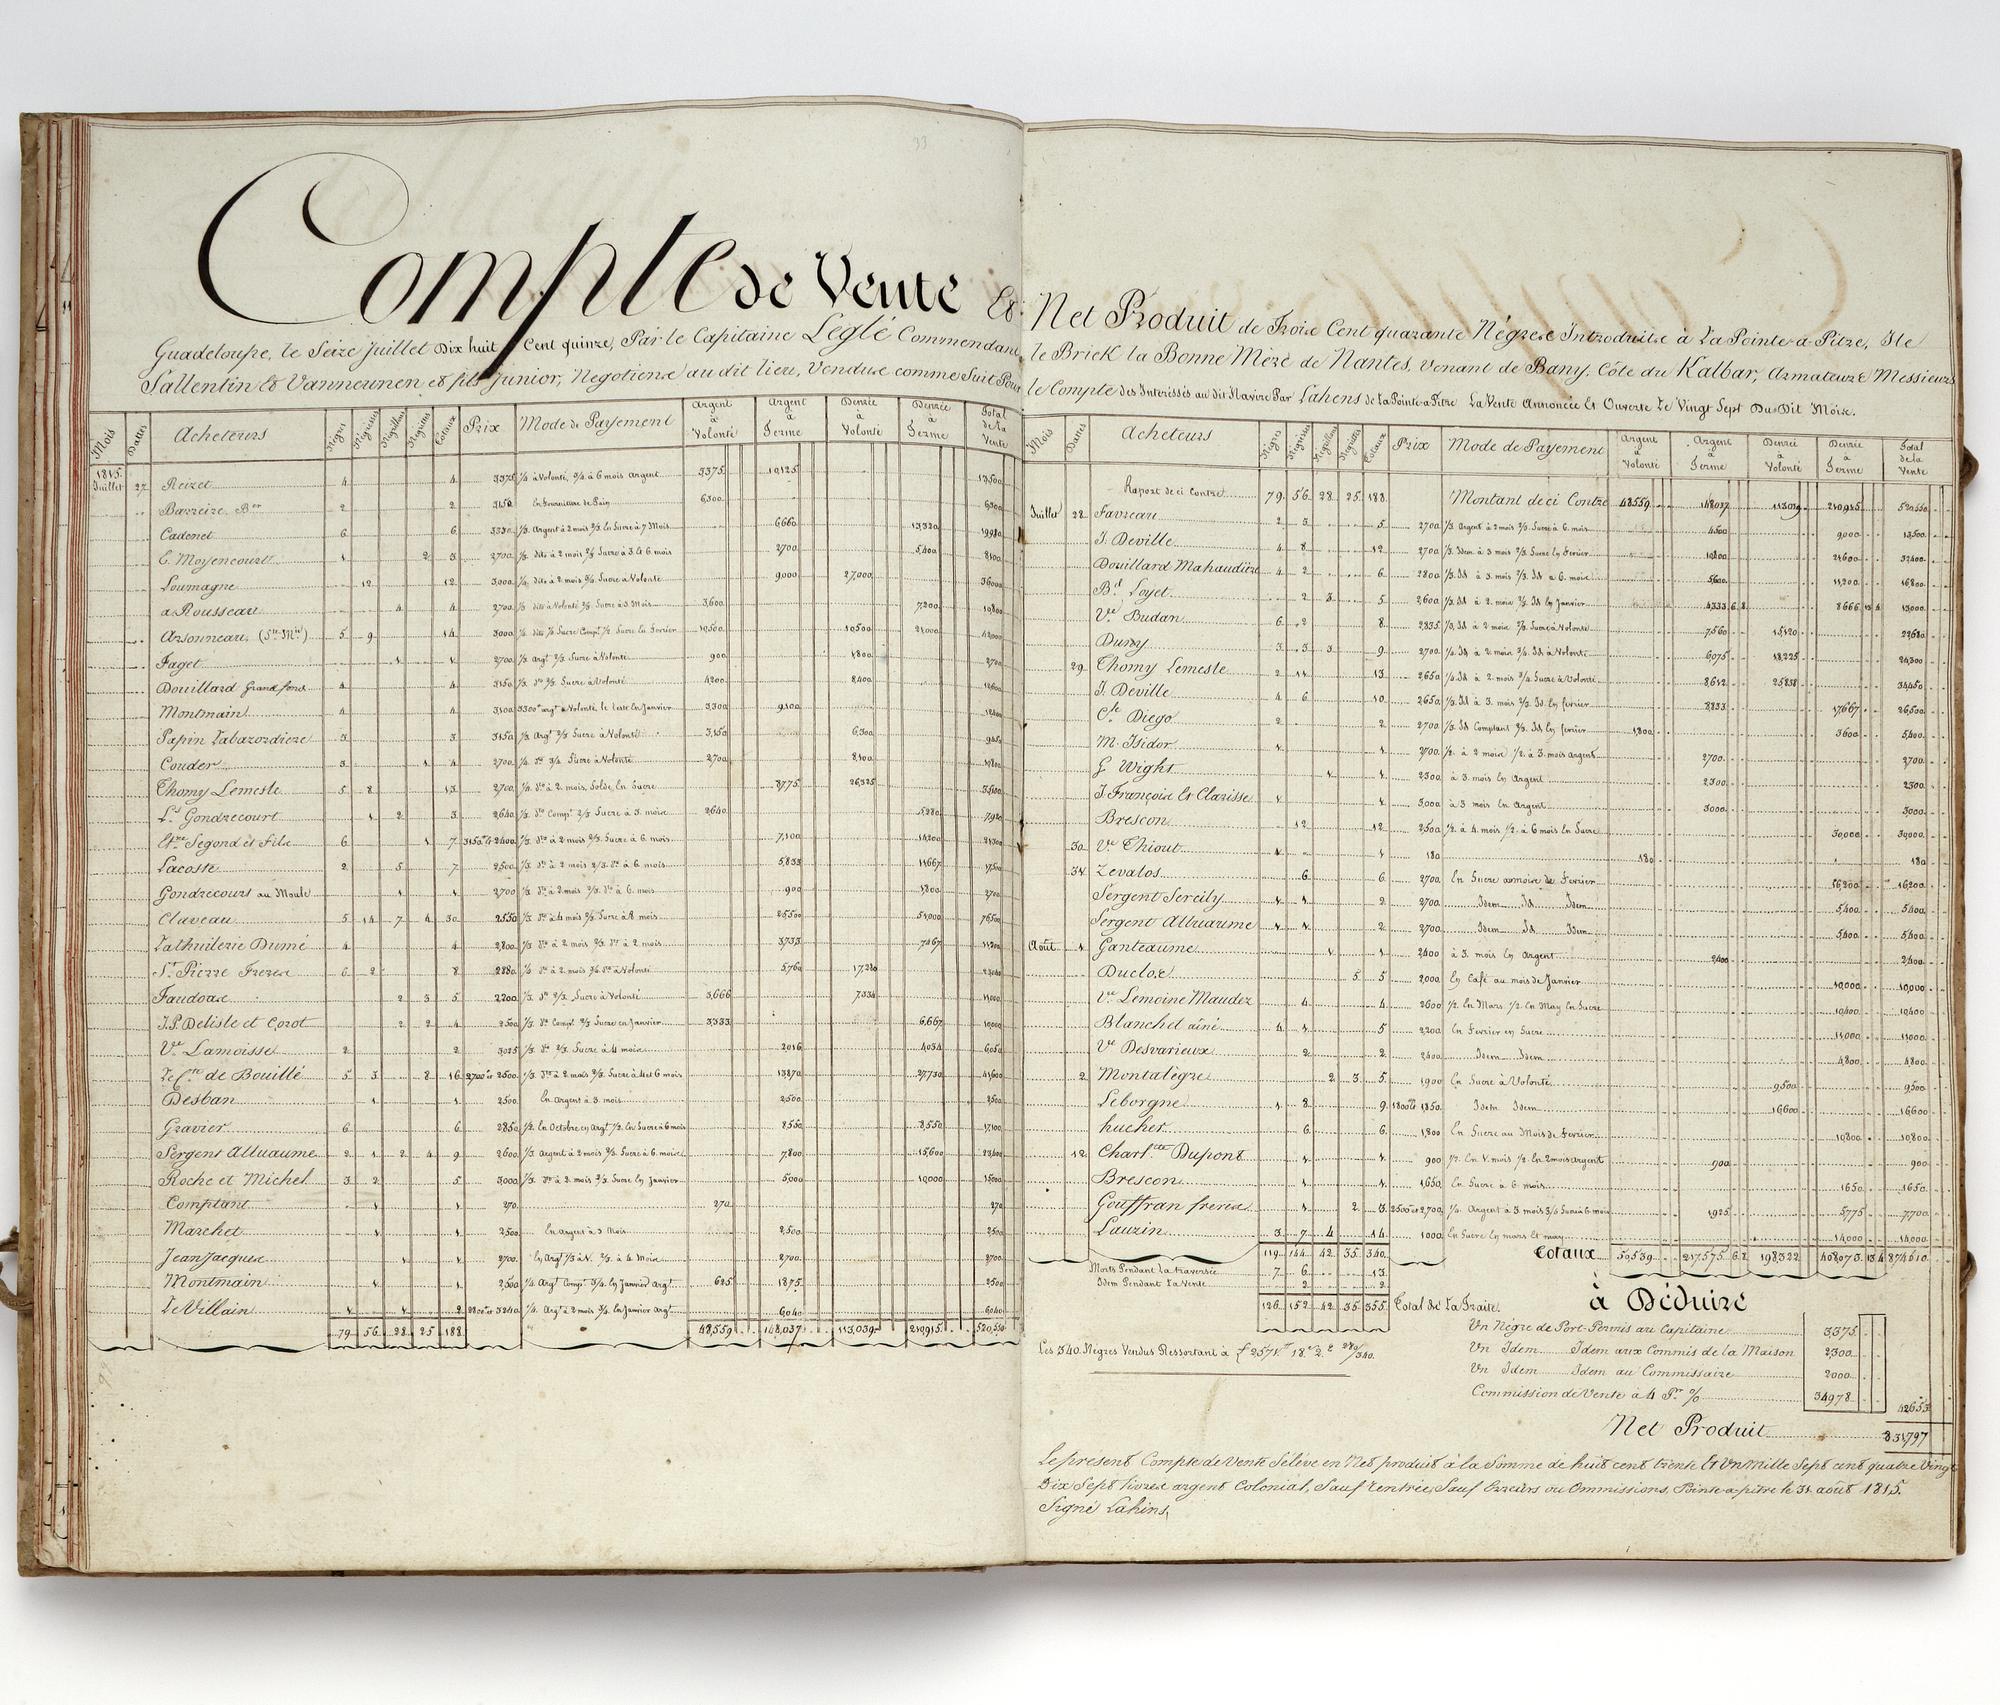 33
Compte de Vente Et
Guadeloupe, le Seize Juillet Dix huit Cent quinze, Par le Capitaine Léglé Commendant
Sallentin Et Vanneunen et fils Junior, Negotiens au dit lieu, Vendus comme Suit Pour
Mois Dattes Acheteurs Négres Négresses Négrillons Négrittes Totaux Prix Mode de Payement Argent à Volonté Argent à Terme Denrée à Volonté Denrée à Terme Total de la Vente
1815. Juillet 27 Reizet 4 4 3375 1/4 à Volonté, 3/4 à 6 mois Argent 3375 10125 13500
Barreire Bor 2 2 3150 En Fourniture de Pain 6300 6300
Cadenet 6 6 3330 1/3 Argent à 2 mois 2/3 En Sucre à 7 Mois 6660 13320 19980
C. Moyencourt 1 2 3 2700 1/3 dito à 2 mois 2/3 Sucre à 3 & 6 mois 2700 5400 8100
Loumagne 12 12 3000 1/4 dito à 2 mois 3/4 Sucre à Volonté 9000 27,000 36000
a Rousseau 4 4 2700 1/3 dito à Volonté 2/3 Sucre à 3 Mois 3,600 7,200 10800
Arsonneau (Ste Mie) 5 9 14 3000 1/4 dito 1/4 Sucre Compt 1/2 Sucre En Fevrier 10500 10500 21000 42000
Faget 1 1 2700 1/3 Argt 2/3 Sucre à Volonté 900 1800 2700
Douillard Grand fond 4 4 3150 1/3 do 2/3 Sucre à Volonté 4200 8,400 12600
Montmain 4 4 3100 3300 argt à Volonté, le reste En Janvier 3,300 9,100 12400
Papin Labazordiere 3 3 3150 1/3 Argt 2/3 Sucre à Volonté 3,150 6,300 9450
Couder 3 1 4 2700 1/4 do 3/4 Sucre à Volonté 2,700 8,100 10800
Thomy Lemesle 5 8 13 2,700 1/4 do à 2 mois, Solde En Sucre 8775 26,325 35100
Ls Gondrecourt 1 2 3 2640 1/3 do Compt 2/3 Sucre à 3 mois 2640 5,280 7920
Segond et Fils 6 1 7 3150 et 2400 1/3 dito à 2 mois 2/3 Sucre à 6 mois 7,100 14200 21300
Lacoste 2 5 7 2500 1/3 do à 2 mois 2/3 do à 6 mois 5,833 11,667 17500
Gondrecourt au Moule 1 1 2700 1/3 do à 2 mois 2/3 do à 6 mois 900 1,800 2700
Claveau 5 14 7 4 30 2550 1/3 do à 4 mois 2/3 Sucre à 8 mois 25,500 51,000 76500
Lathuilerie Dumé 4 4 2,800 1/3 do à 2 mois 2/3 do à 2 mois 3,733 7467 11200
St Pierre Freres 6 2 8 2880 1/4 do à 2 mois 3/4 do à Volonté 5,760 17,280 23040
Faudoas 2 3 5 2200 1/3 do 2/3 Sucre à Volonté 3,666 7334 11000
J.P. Delisle et Corot 2 2 4 2500 1/3 do Compt 2/3 Sucre en Janvier 3,333 6,667 10,000
Ve Lamoisse 2 2 3025 1/3 do 2/3 Sucre à 4 mois 2016 4034 6050
Le Cte de Bouillé 5 3 8 16 2700 et 2500 1/3 dito à 2 mois 2/3 Sucre à 4 et 6 mois 13870 27,730 41600
Desban 1 1 2500 En argent à 3 mois 2,500 2500
Gravier 6 6 2850 1/2 En Octobre en Argt 1/2 En Sucre à 6 mois 8550 8,550 17,100
Sergent Alluaume 2 1 2 4 9 2600 1/3 Argent à 2 mois 2/3 Sucre à 6 mois 7,800 15600 23,400
Roche et Michel 3 2 5 3000 1/3 do à 2 mois 2/3 Sucre En Janvier 5,000 10,000 15000
Comptant 1 1 270 270 270
Marchet 1 1 2500 En argent à 3 Mois 2,500 2500
Jean Jacques 1 1 2700 En Argt 1/3 à V. 2/3 à 4 Mois 2,700 2700
Montmain 1 1 2,500 1/4 Argt Compt 3/4 En Janvier Argt 625 1875 2500
Le Villain 1 1 2 1/4 Argt à 2 mois 3/4 En Janvier Argt 6040 6040
79 56 28 25 188 48,559 148,037 113,039 210915 520,550
Net Produit de Trois Cent quarante Négres Introduits à La Pointe-a-Pitre, Ile
le Brick la Bonne Mère de Nantes, venant de Bany, Côte du Kalbar, Armateurs Messieurs
le Compte des Interessés au dit Navire Par Lahens de la Pointe-à-Pitre La Vente Annoncée Et Ouverte Le Vingt Sept Du Dit Mois.
Mois Dattes Acheteurs Négres Négresses Négrillons Négrittes Totaux Prix Mode de Payement Argent à Volonté Argent à Terme Denrée à Volonté Denrée à Terme Total de la Vente
Raport de ci Contre 79 56 28 25 188 Montant de ci Contre 48559 148037 113039 210915 520550
Juillet 28 Favreau 2 3 5 2700 1/3 Argent à 2 mois 2/3 Sucre à 6 mois 4500 9,000 13,500
J. Deville 4 8 12 2700 1/3 Idem à 3 mois 2/3 Sucre En Fevrier 10800 21600 32400
Douillard Mahaudiere 4 2 6 2800 1/3 Id à 3 mois 2/3 Id à 6 mois 5600 11,200 16800
Bd Loyet 2 3 5 2600 1/3 Id à 2 mois 2/3 Id En Janvier 4333 6 8 8666 13 4 13000
Ve Budan 6 2 8 2,835 1/3 Id à 2 mois 2/3 Sucre à Volonté 7560 15,120 22680
Dumy 3 3 3 9 2700 1/4 Id à 2 mois 3/4 Id à Volonté 6075 18,225 24,300
29 Thomy Lemesle 2 11 13 2650 1/4 Id à 2 mois 3/4 Sucre à Volonté 8,612 25,838 34450
J. Deville 4 6 10 2650 1/3 Id à 3 mois 2/3 Id En fevrier 8833 17,667 26,500
Cte Diego 2 2 2700 1/3 Id Comptant 2/3 Id En fevrier 1,800 3600 5,400
M. Isidor 1 1 2700 1/2 à 2 mois 1/2 à 3 mois argent 2700 2,700
G Wight 1 1 2300 à 3 mois En Argent 2300 2300
J. François Et Clarisse 1 1 3,000 à 3 mois En Argent 3000 3,000
Brescon 12 12 2500 1/2 à 4 mois 1/2 à 6 mois En Sucre 30,000 30,000
30 Ve Thiout 1 1 180 180 180
31 Zevalos 6 6 2,700 En Sucre au mois de Fevrier 16,200 16,200
Sergent Sercily 1 1 2 2700 Idem Id Idem 5,400 5,400
Sergent Alluaume 1 1 2 2,700 Idem Id Idem 5,400 5,400
Août 1 Ganteaume 1 1 2400 à 3 mois En Argent 2400 2,400
Duclos 5 5 2000 En Café au mois de Janvier 10,000 10,000
Ve Lemoine Maudez 4 4 2600 1/2 En Mars 1/2 En May En Sucre 10400 10400
Blanchet aîné 4 1 5 2,200 En Fevrier en Sucre 11,000 11,000
Ve Desvarieux 2 2 2400 Idem Idem 4,800 4,800
2 Montalègre 2 3 5 1900 En Sucre à Volonté 9,500 9,500
Leborgne 1 8 9 1800 et 1850 Idem Idem 16600 16600
hucher 6 6 1,800 En Sucre au Mois de Fevrier 10,800 10,800
12 Charltte Dupont 1 1 900 1/2 En 1 mois 1/2 En 2 mois argent 900 900
Brescon 1 1 1,650 En Sucre à 6 mois 1650 1650
Gouffran freres 1 2 3 2500 et 2,700 1/4 Argent à 3 mois 3/4 Sucre à 6 mois 1925 5775 7,700
Lauzin 3 7 4 14 1000 En Sucre En mars et may 14,000 14,000
119 144 42 35 340 Totaux 50539 217,575 6 8 198322 408073 13 4 874510
Morts Pendant la traversée 7 6 13
Idem Pendant La Vente 2 2
126 152 42 35 355 Total de La Traite
à Déduire
Un Nègre de Port-Permis au Capitaine 3,375
Un Idem Idem aux Commis de la Maison 2,300
Un Idem Idem au Commissaire 2000
Commission de Vente à 4 Pr % 34978
42653
Les 340 Négres Vendus Ressortant à £ 2571 18 2
Net Produit 831,797
Le present Compte de Vente S'élève en Net produit à la Somme de huit cent trente Et Un Mille Sept cent quatre Vingt
Dix Sept livres argent Colonial, Sauf rentrie, Sauf Erreurs ou Ommissions, Pointe-a-pitre le 31 août 1815.
Signé Lahins,